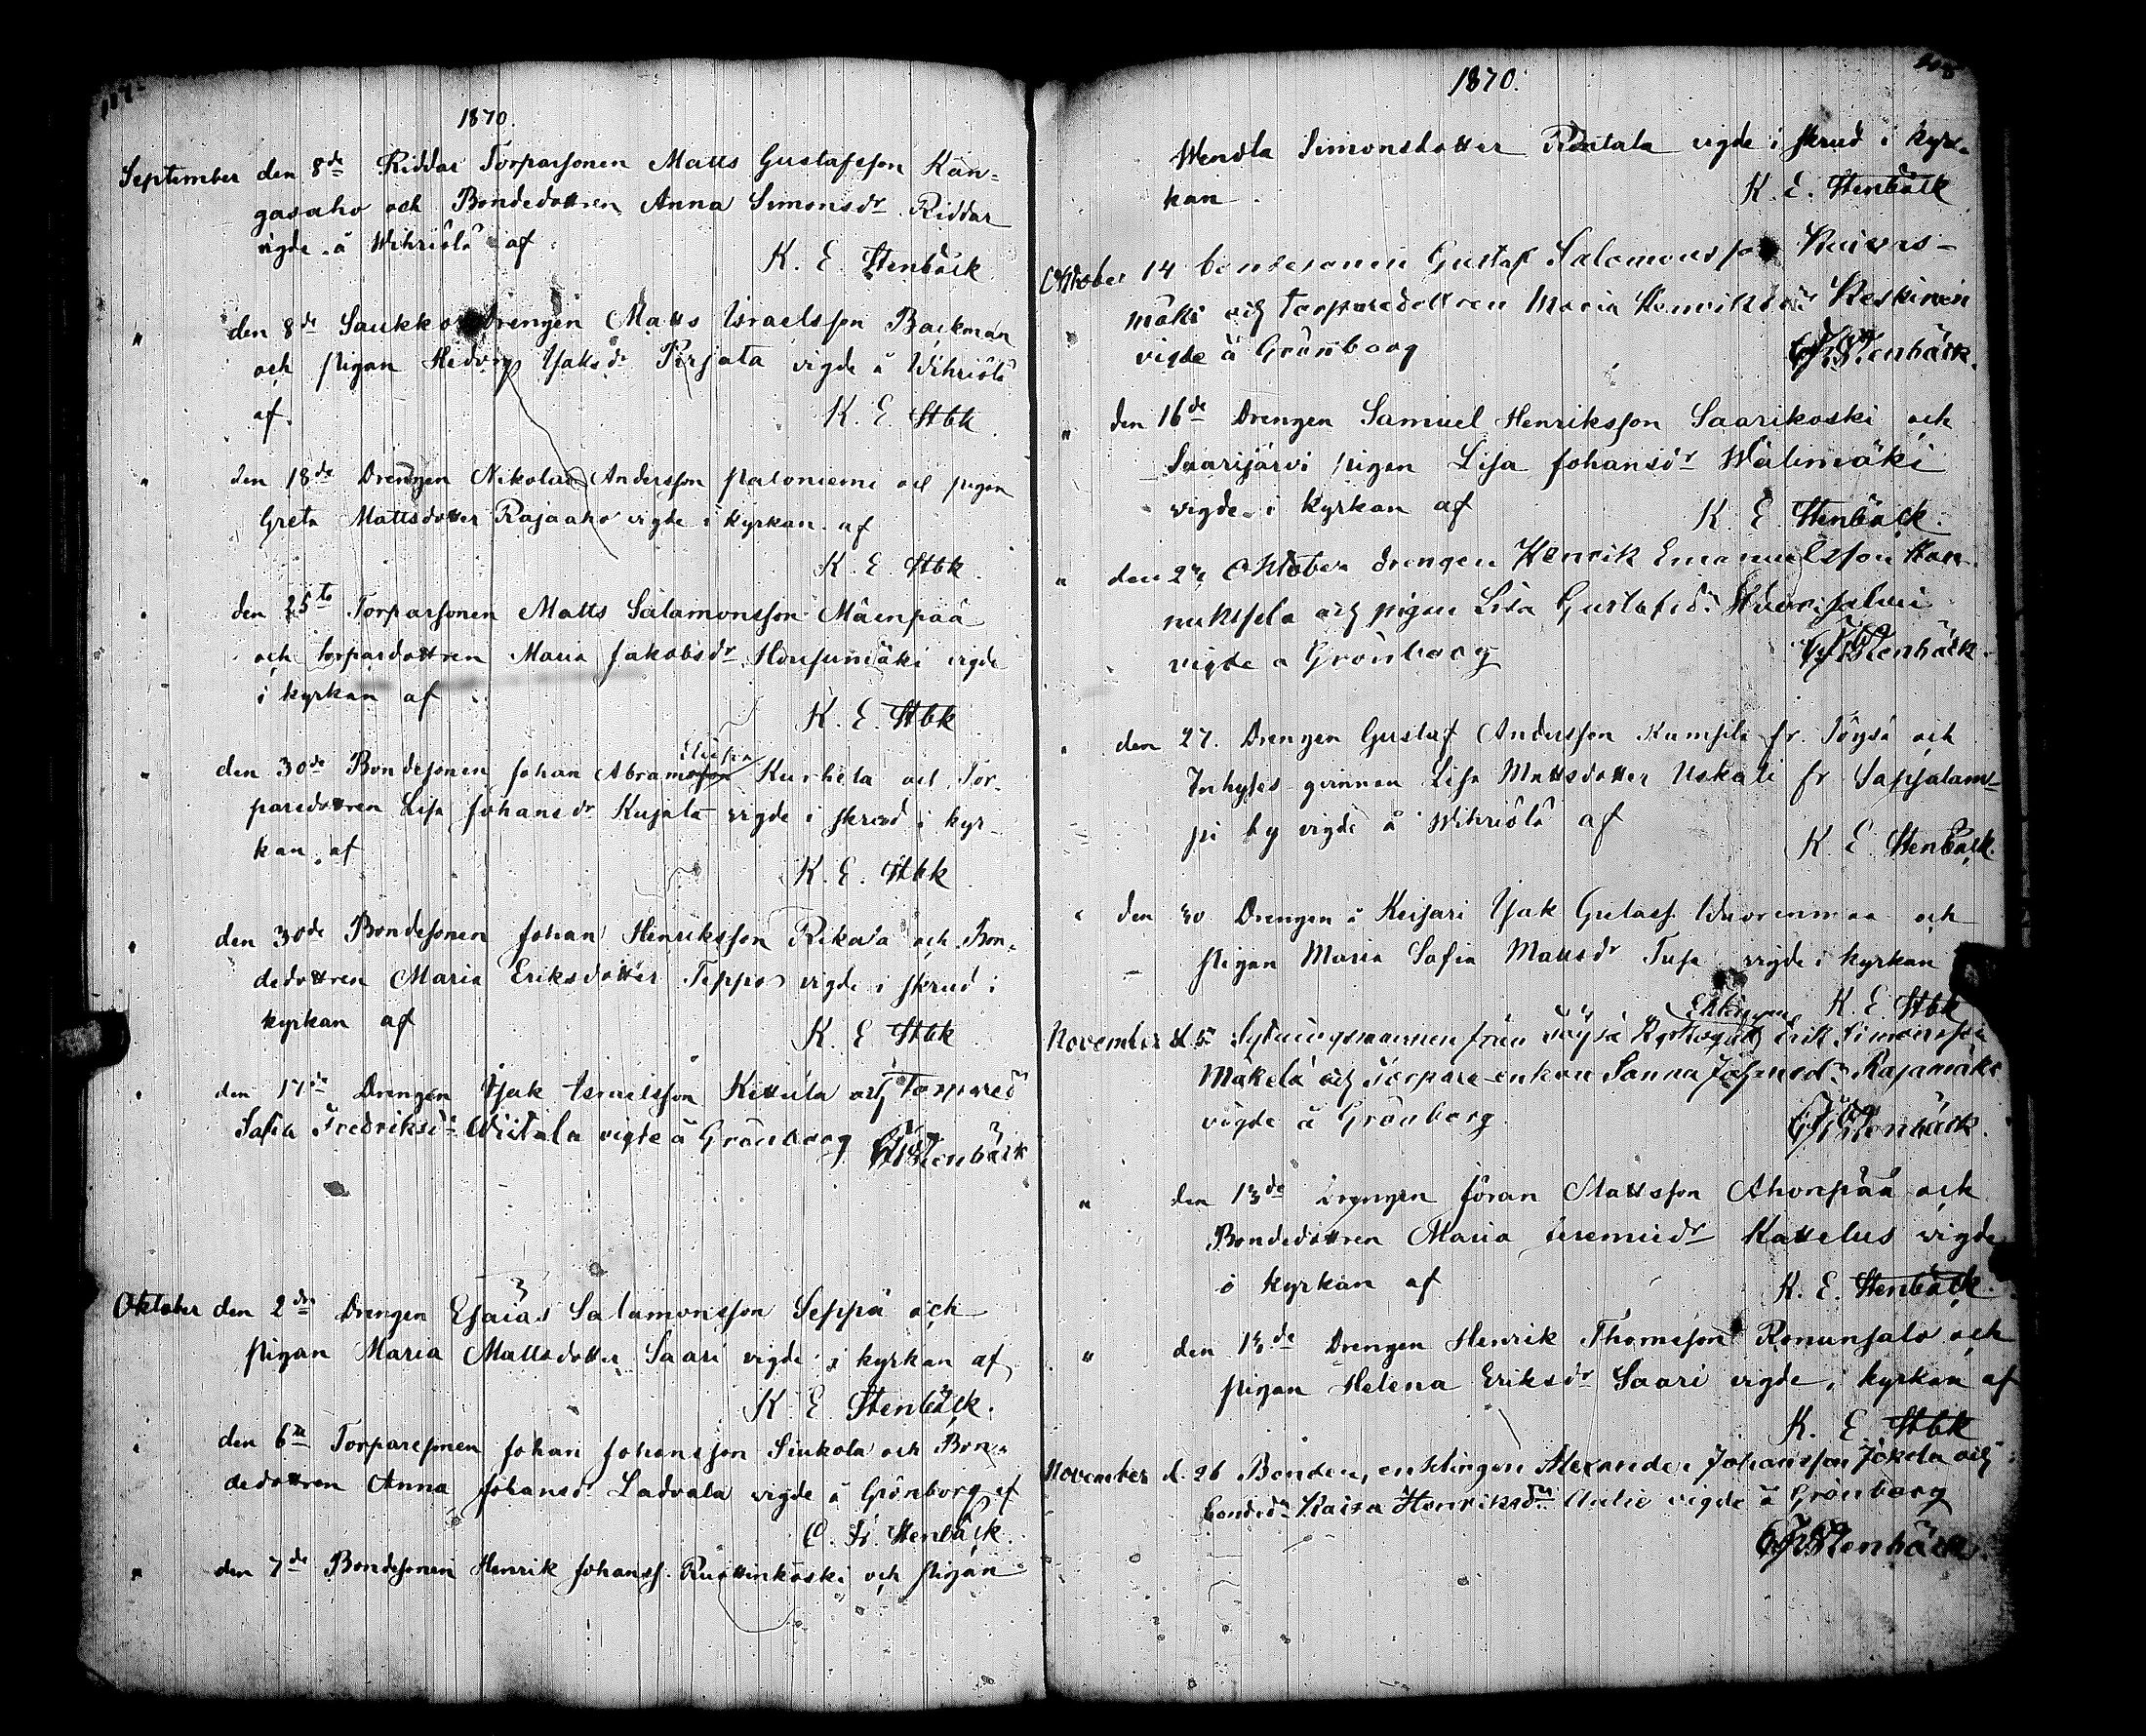 117
1870.
September den 8de Riddar Torparsonen Matts Gustafsson Kan-
gasaho och Bondedottren Anna Simonsdr Riddar
vigde å Wihriälä af
K. E. Stenbäck
" den 8de Saukko Drengen Matts Israelsson Backman
och pigan Hedvig Isaksdr Pirjata vigde å Wihriälä
af.
K. E. Stbk.
" den 18de Drengen Nikolaus Andersson Paloniemi och pigan
Greta Mattsdotter Rajaaho vigde i kyrkan af
K. E. Stbk.
" den 25te Torparsonen Matts Salamonsson Mäenpää
och Torpardottren Maria Jakobsdr vigde
i kyrkan af
K. E. Stbk
" den 30de Bondesonen Johan Abramsson Kurhela och Tor-
paredottren Lisa Johansdr Kujala vigde i skrud i kyr-
kan af
K. E. Stbk
" den 30de Bondesonen Johan Henriksson Rikala och Bon-
dedottren Maria Eriksdotter Teppo vigde i skrud i
kyrkan af
K. E. Stbk
" den 17de Drengen Isak Israelsson Kettula och Torpared
Safia Fredriksdr Wiitala vigde å Grönborg Stenbäck
Oktober den 2dra Drengen Esaias Salamonsson Seppä och
pigan Maria Mattsdotter Saari vigde i kyrkan af
K. E. Stenbäck.
" den 6te Torparesonen Johan Johansson Sinkola och Bon-
dedottren Anna Johansdr Ladvala vigde å Grönborg af
C. Fr. Stenbäck.
" den 7de Bondesonen Henrik Johanss. Ruottinkoski och pigan
1870.
Wendla Simonsdotter Rantala vigde i skrud i kyr-
kan.
K. E. Stenbäck
Oktober 14 bondesonen Gustaf Salomonsson
mäki och torparedottren Maria Keskinen
vigde å Grönborg
Stenbäck.
" den 16de Drengen Samuel Henriksson Saarikoski och
Saarijärvi pigan Lisa Johansdr Wälimäki
vigde i kyrkan af
K. E. Stenbäck.
" den Oktober drengen Henrik Emanuelsson Han-
nuksela och pigan Lisa Gustafsdr
vigde å Grönborg
Stenbäck.
" den 27. Drengen Gustaf Andersson fr. Töysä och
Inhyses qvinnan Lisa Mattsdotter Uskali fr Sapsalam-
pi by vigde å Wihriälä af
K. E. Stenbäck.
" den 30 Drengen å Keisari Isak Gustafs. Wuorenmaa och
pigan Maria Safia Mattsdr Tusa vigde i kyrkan
K. E. Stbk
November d. 5 från Töysä Enklingen Erik Simonsson
Mäkelä och Torpare enkan Sanna Johansdr Rajamäki
vigde å Grönborg
Stenbäck.
" den 13de Drengen Göran Mattsson Ahonpää och
Bondedottren Maria Jeremiedr Kattelus vigde
i kyrkan af
K. E. Stenbäck.
" den 13de Drengen Henrik Thomsson Ronunsalo och
pigan Helena Eriksdr Saari vigde i kyrkan af
K. E. Stbk
November d. 26 Bonden, enklingen Alexander Johansson Jokela och
bonded. Kaisa Henriksdr vigde å Grönborg
Stenbäck.